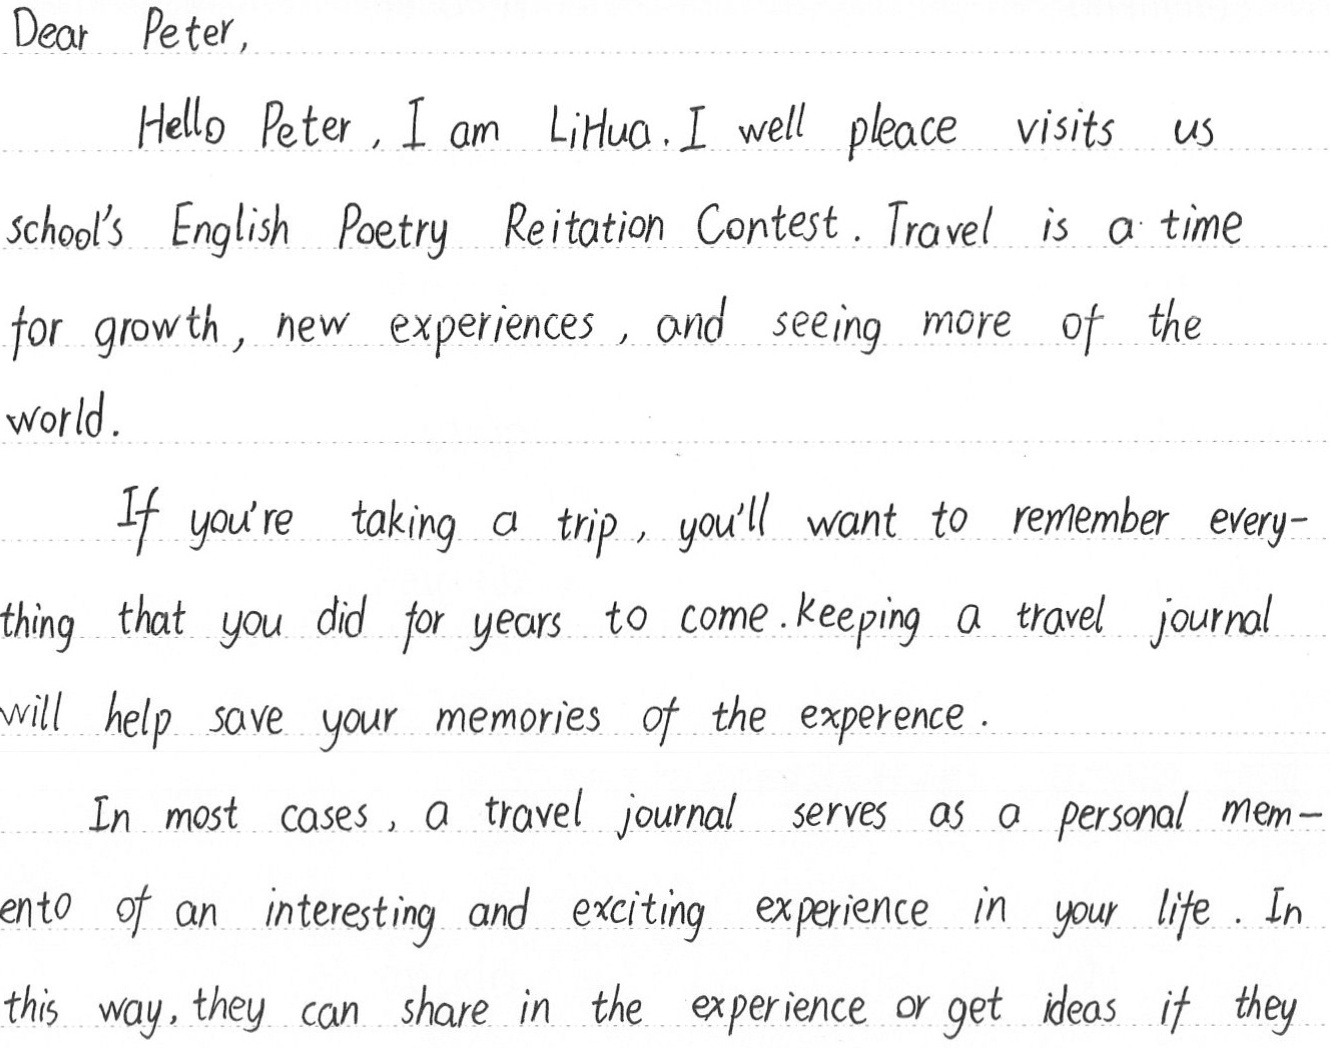 Dear Peter,
Hello Peter, I am LiHua. I well pleace visits us
school's English Poetry Reitation Contest. Travel is a time
for growth, new experiences, and seeing more of the
world.
If you're taking a trip, you'll want to remember every-
thing that you did for years to come. keeping a travel journal
will help save your memories of the experence.
In most cases, a travel journal serves as a personal mem-
ento of an interesting and exciting experience in your life. In
this way, they can share in the experience or get ideas if they